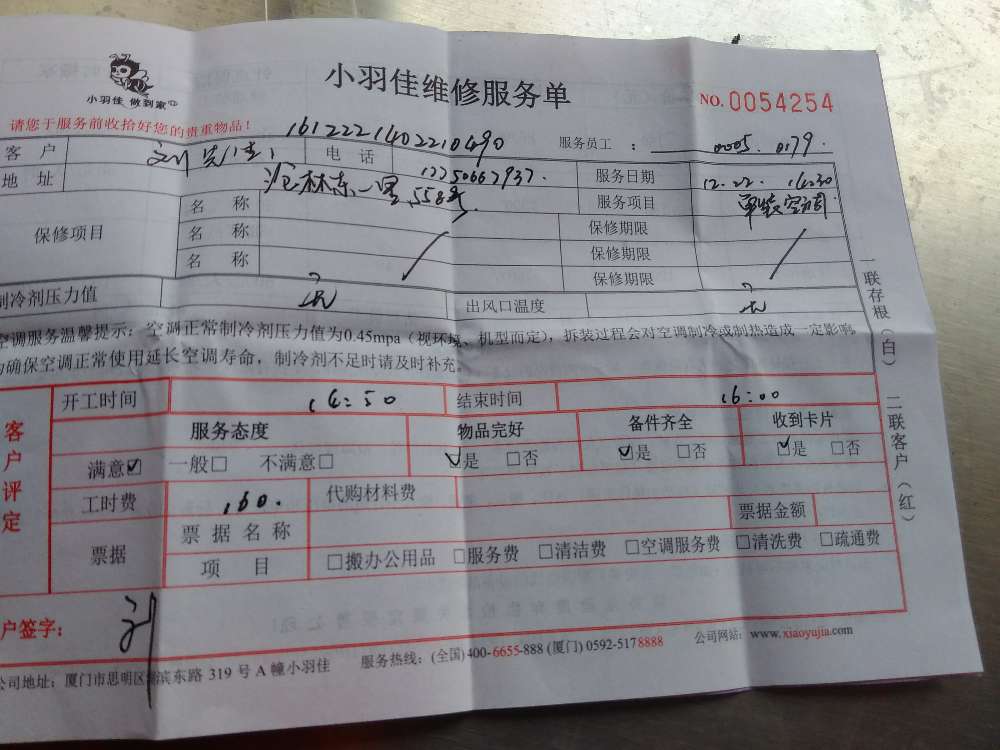 小羽佳 做到家
小羽佳维修服务单
NO.0054254
请您于服务前收拾好您的贵重物品！
16122214022210490
服务员工 ： 0005. 0179.
客 户 刘 电 话 服务日期 12.22. 14:30
地 址 东一里558号 服务项目 单装空调
保修项目
名 称 保修期限
名 称 保修期限
名 称 保修期限
制冷剂压力值 出风口温度
空调服务温馨提示：空调正常制冷剂压力值为0.45mpa（视环境、机型而定），拆装过程会对空调制冷或制热造成一定影响
为确保空调正常使用延长空调寿命，制冷剂不足时请及时补充。
一联存根（白） 二联客户（红）
客户评定
开工时间 14:50 结束时间 16:00
服务态度 物品完好 备件齐全 收到卡片
满意☑ 一般□ 不满意□ ☑是 □否 ☑是 □否 ☑是 □否
工时费 160. 代购材料费
票据 票据名称 票据金额
项 目 □搬办公用品 □服务费 □清洁费 □空调服务费 □清洗费 □疏通费
户签字： 刘
公司地址：厦门市思明区湖滨东路 319 号 A 幢小羽佳 服务热线：(全国) 400-6655-888 (厦门) 0592-5178888 公司网站：www.xiaoyujia.com